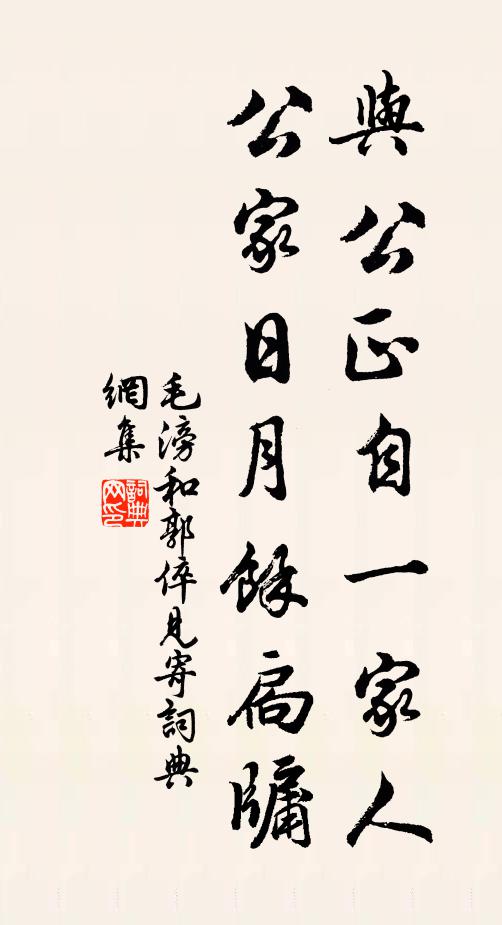 與公正自一家人
公家日月餘扃牖
毛滂和郭倅見寄詞典
網集
詞典
网印